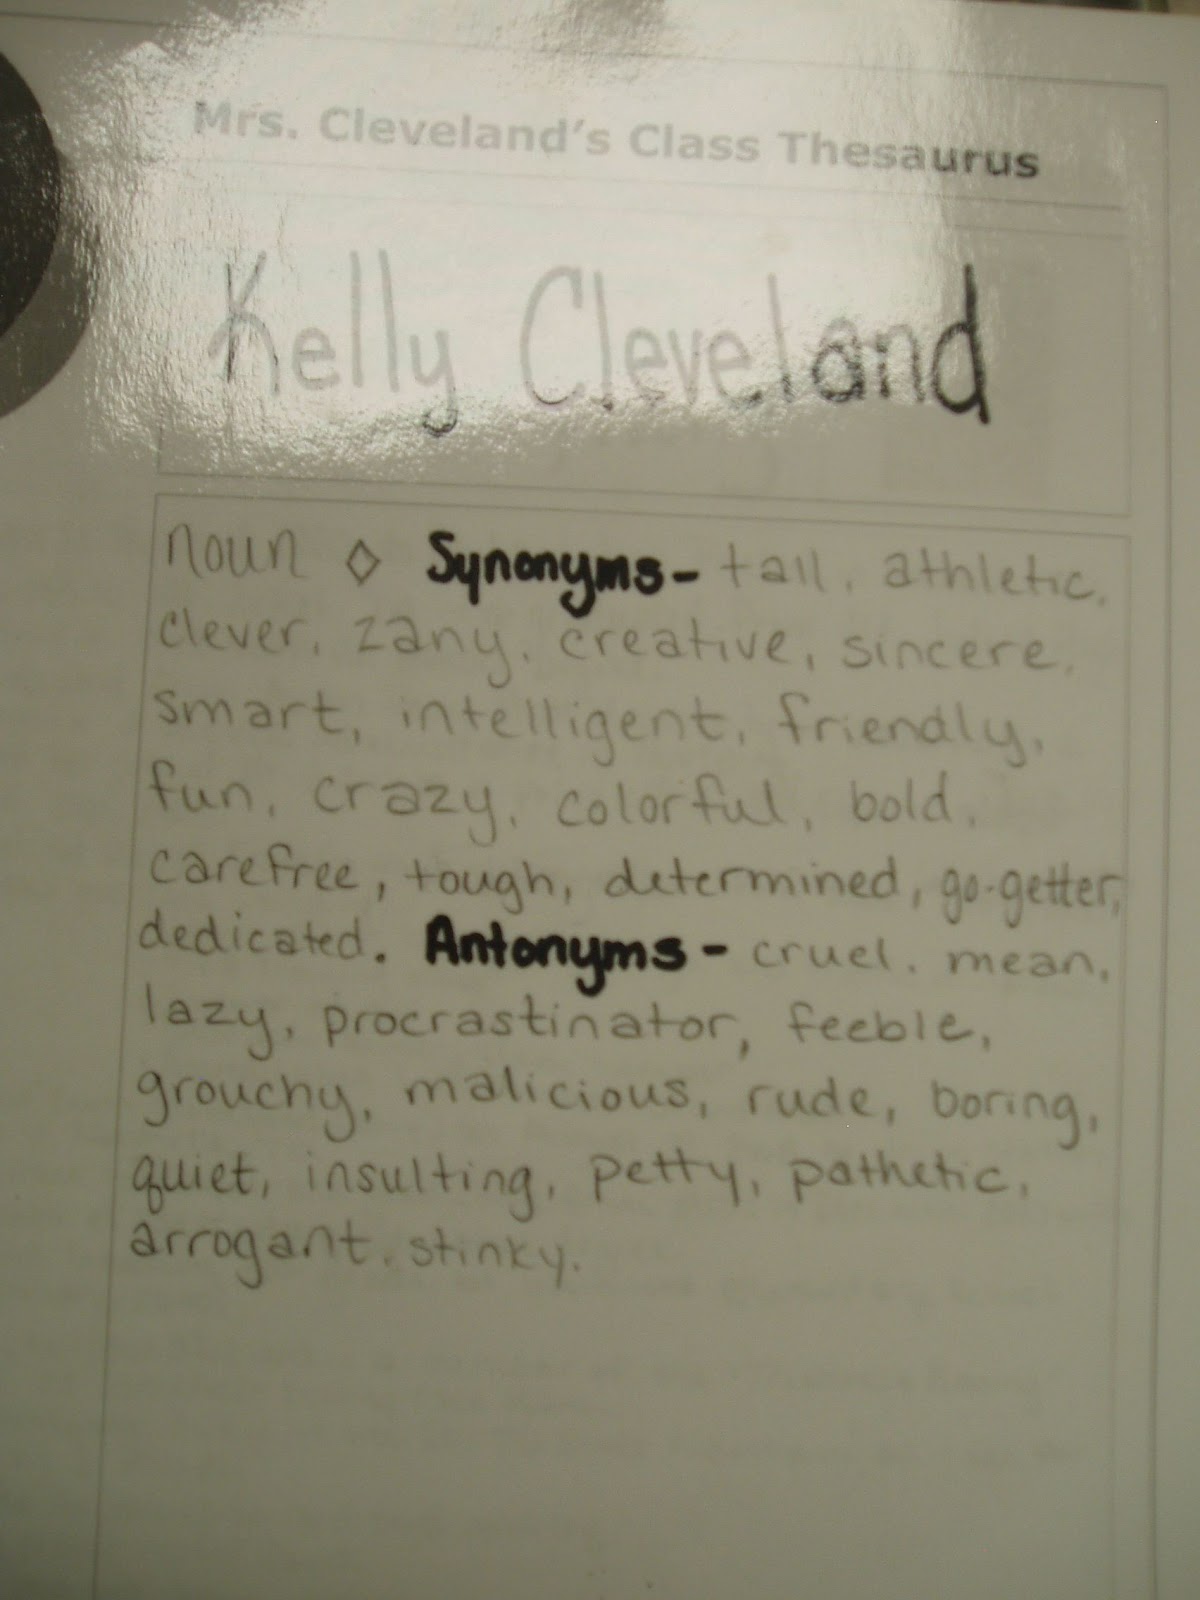 Mrs. Cleveland's Class Thesaurus
Kelly Cleveland
noun ◇ Synonyms- tall, athletic,
clever, zany, creative, sincere,
smart, intelligent, friendly,
fun, crazy, colorful, bold,
carefree, tough, determined, go-getter,
dedicated. Antonyms- cruel, mean,
lazy, procrastinator, feeble,
grouchy, malicious, rude, boring,
quiet, insulting, petty, pathetic,
arrogant, stinky.